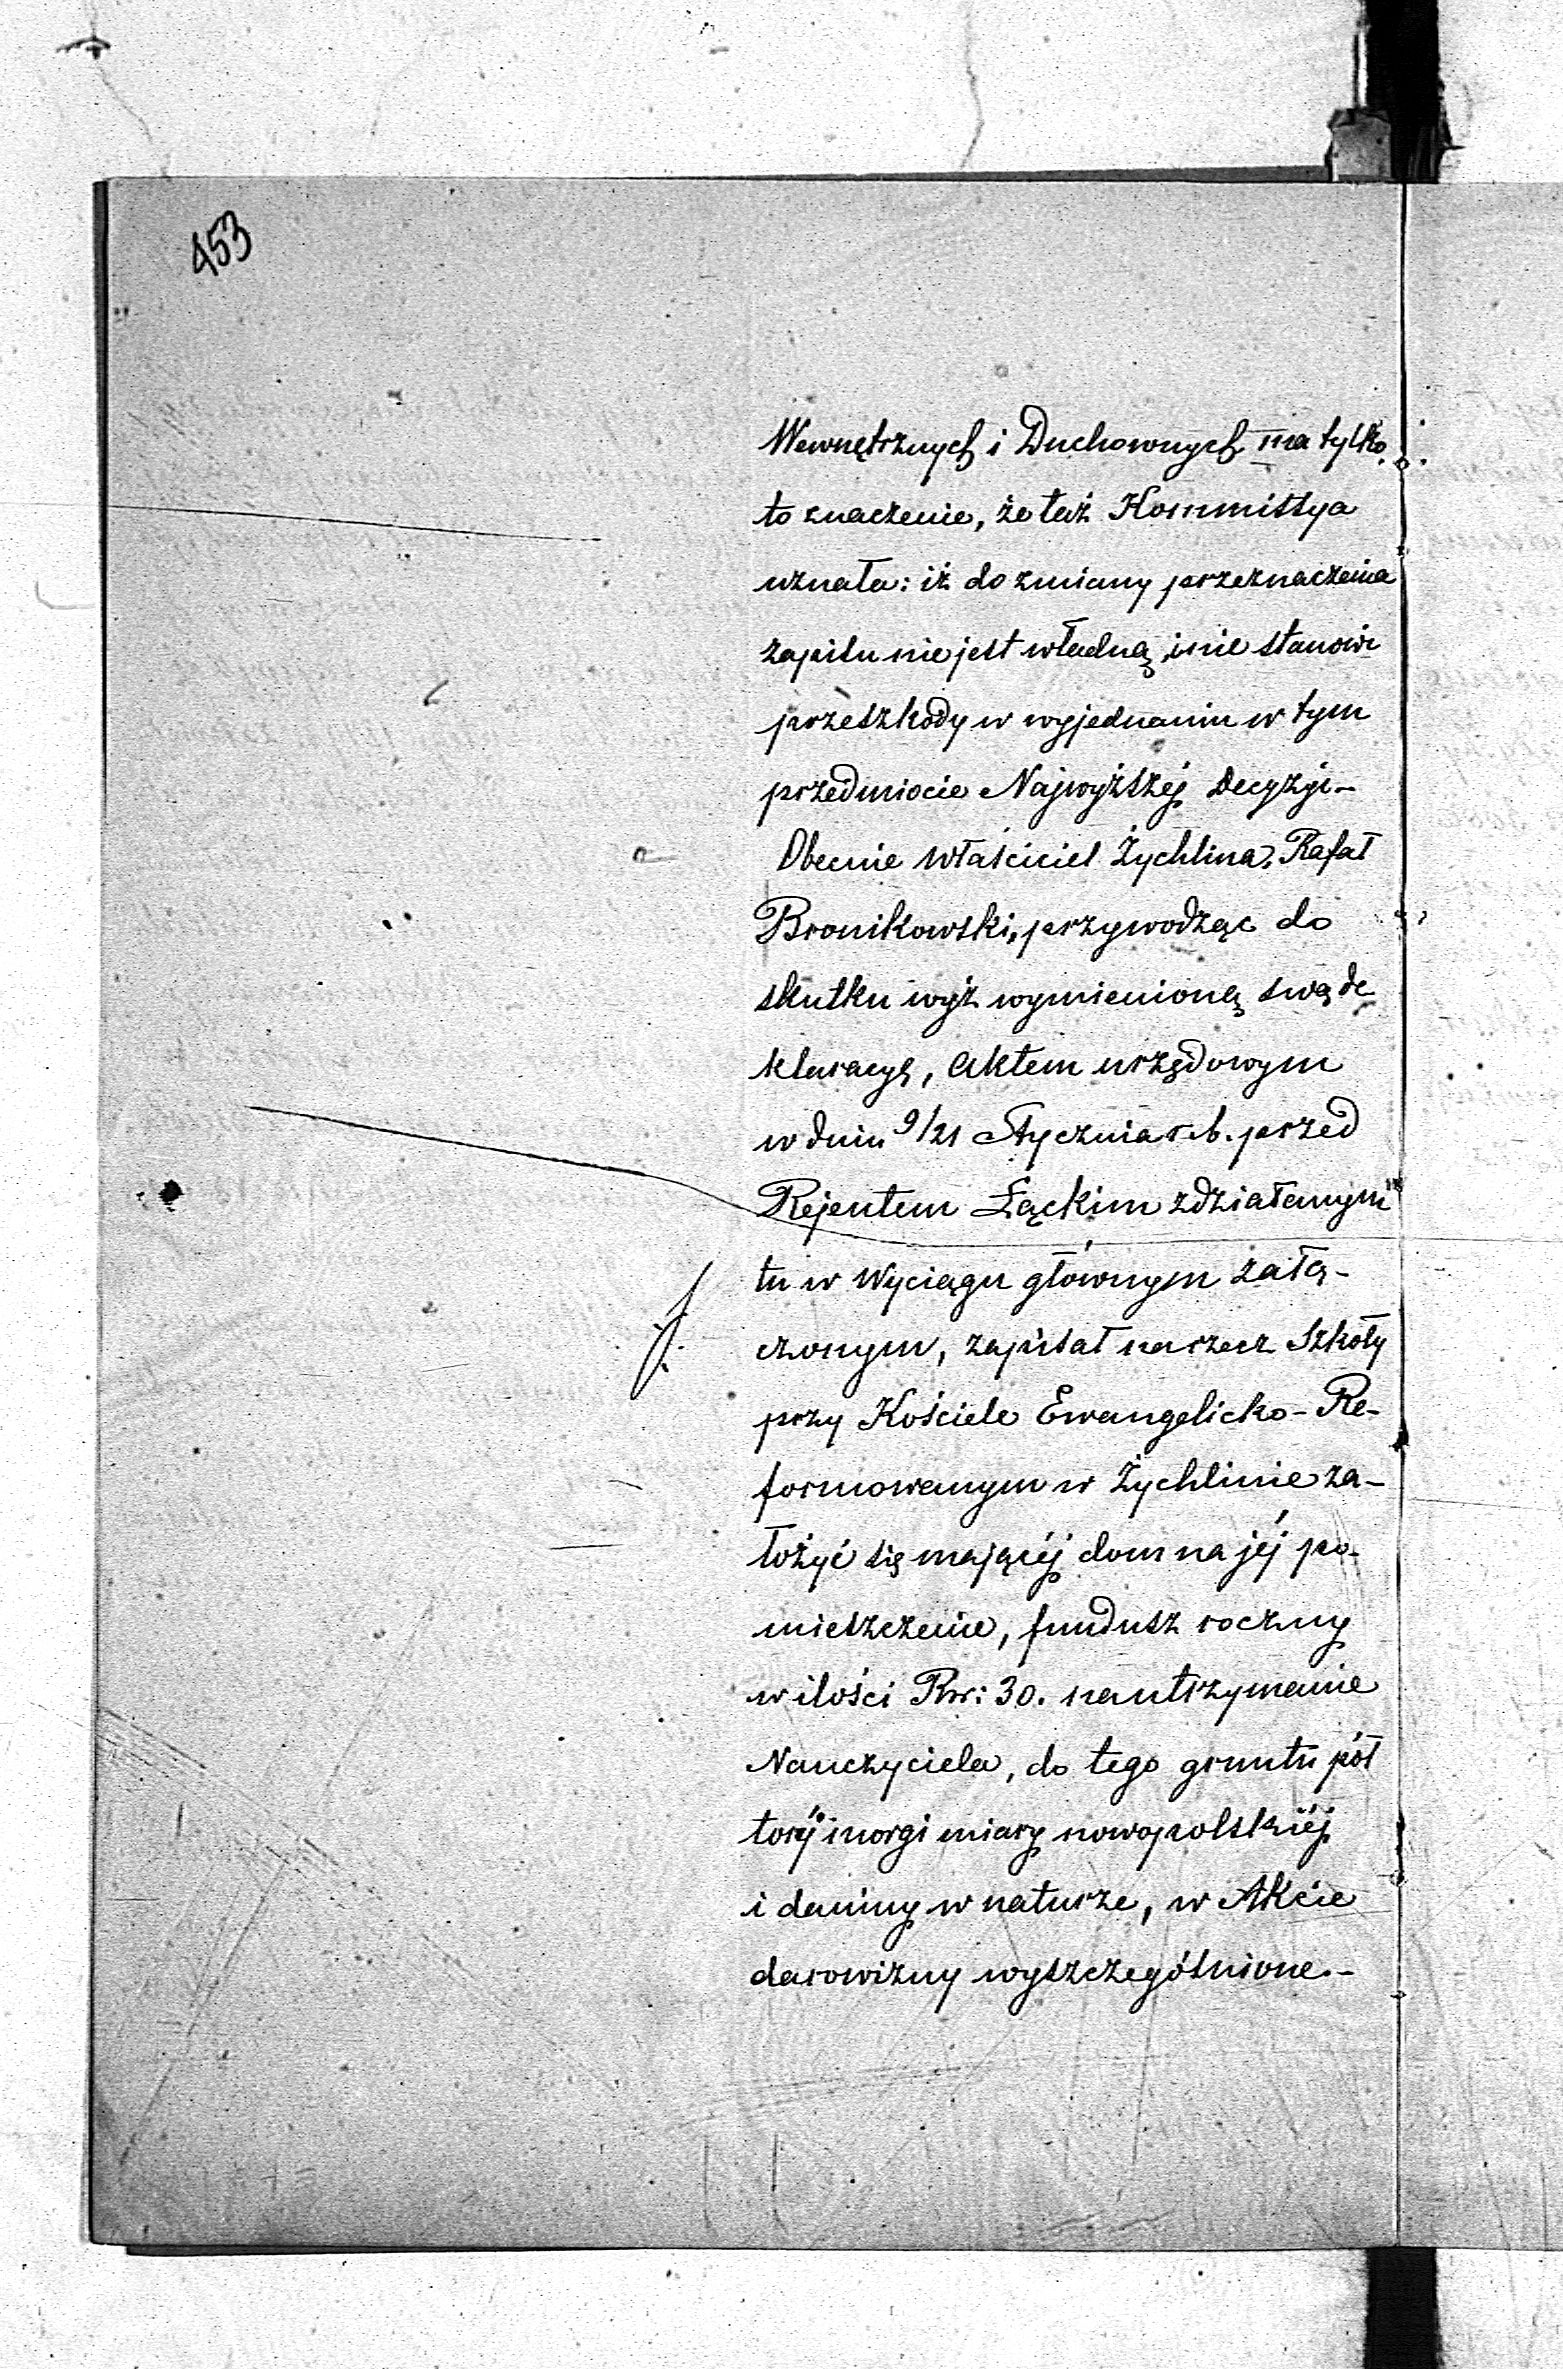 453
Wewnętrznych i Duchownych ma tylko
to znaczenie, że taż Kommissya
uznała: iż do zmiany przeznaczenia
zapisu nie jest władną, i nie stanowi
przeszkody w wyjednaniu w tym
przedmiocie Najwyższej Decyzyi –
Obecnie właściciel Żychlina, Rafał
Bronikowski, przywodząc do
skutku wyż wymienioną swą de
klaracyą, Aktem urzędowym
w dniu 9/21 Stycznia r. b. przed
Rejentem Łąckim zdziałanym
tu w Wyciągu głównym załą-
czonym, zapisał na rzecz Szkoły
przy Kościele Ewangelicko-Re-
formowanym w Żychlinie za-
łożyć się mającéj dom na jéj po-
mieszczenie, fundusz roczny
w ilości Rsr: 30. na utrzymanie
Nauczyciela, do tego gruntu pół
toréj morgi miary nowopolskiéj
i daniny w naturze, w Akcie
darowizny wyszczególnione. –